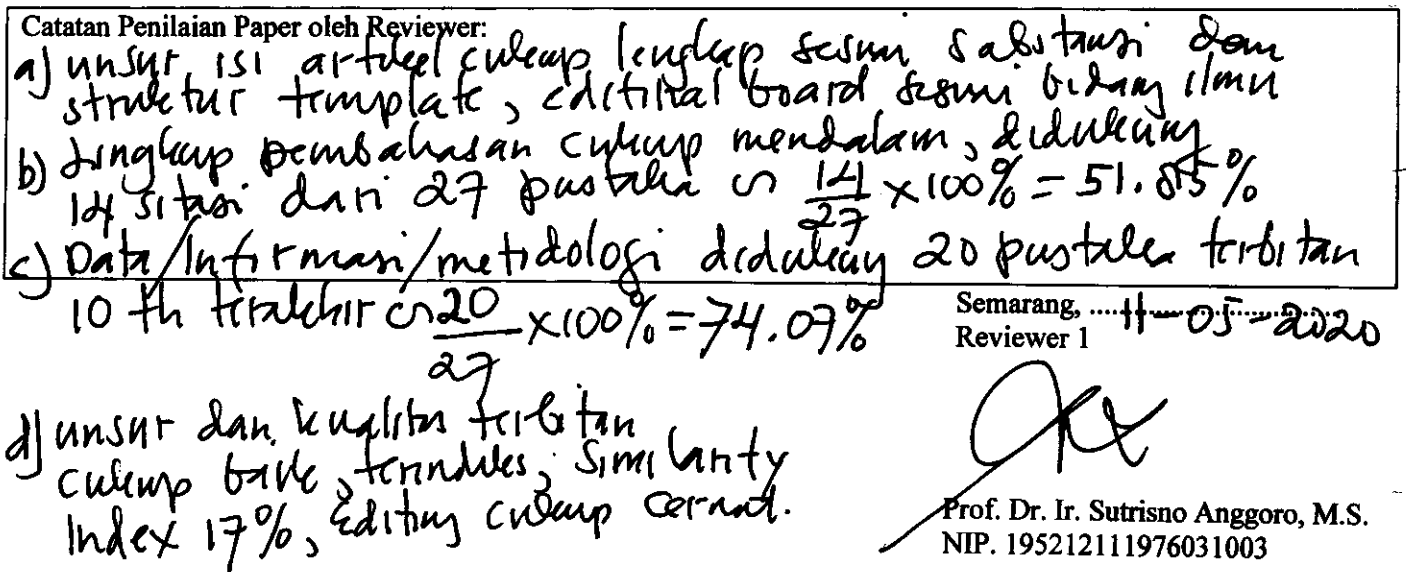 Catatan Penilaian Paper oleh Reviewer:
a) unsur isi artikel cukup lengkap sesuai substansi dan
struktur template, editorial board sesuai bidang ilmu
b) Lingkup pembahasan cukup mendalam, didukung
14 sitasi dari 27 pustaka ∽ 14/27 x 100% = 51.85%
c) Data/Informasi/metodologi didukung 20 pustaka terbitan
10 th terakhir ∽ 20/27 x 100% = 74.07%
Semarang, ....11-05-2020
Reviewer 1
d) unsur dan kualitas terbitan
cukup baik, terindeks, Similarity
Index 17%, Editing cukup cermat.
Prof. Dr. Ir. Sutrisno Anggoro, M.S.
NIP. 195212111976031003